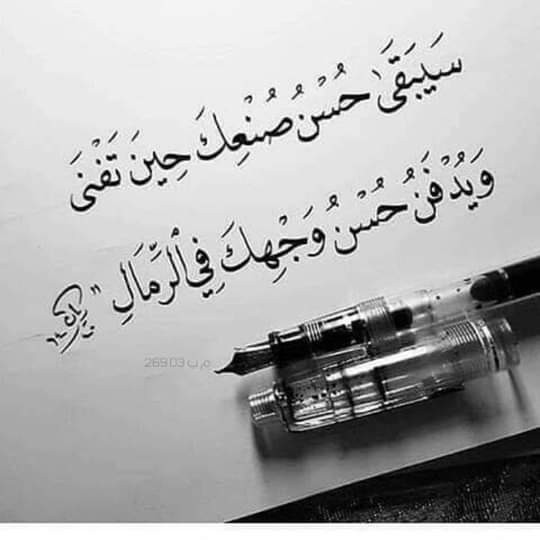 سَيَبْقَىٰ حُسْنُ صُنْعِكَ حِينَ تَفْنَىٰ
وَيُدْفَنُ حُسْنُ وَجْهِكَ فِي ٱلرِّمَالِ "
م ب 269.03